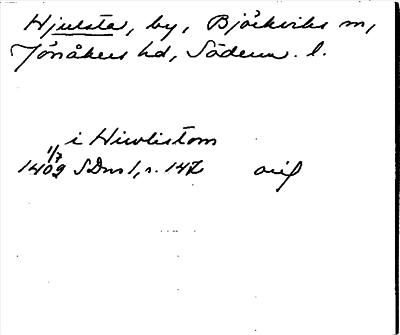 Hjulsta, by, Björkviks sn,
Jönåkers hd, Söderm. l.
i Hiwlistom
1/7
1409 SDns 1, s. 147 orig